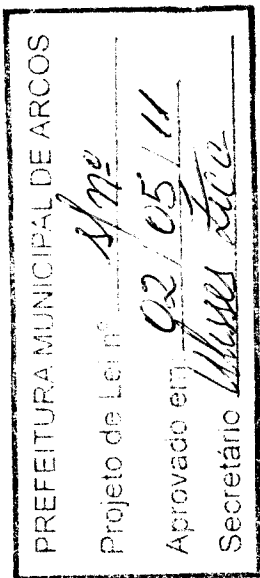 PREFEITURA MUNICIPAL DE ARCOS
Projeto de Lei nº s/nº
Aprovado em 02/05/11
Secretário Ulisses